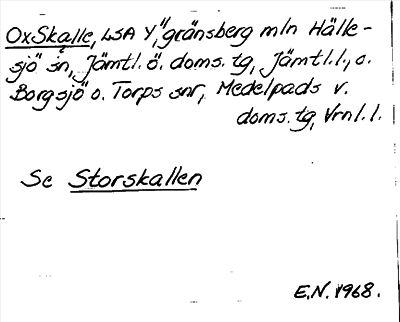 OxSkalle, LSA Y, "gränsberg mln Hälle-
sjö sn, Jämtl. ö. doms. tg, Jämtl. l., o.
Borgsjö o. Torps snr, Medelpads v.
doms. tg, Vrnl. l.
Se Storskallen
E.N. 1968.